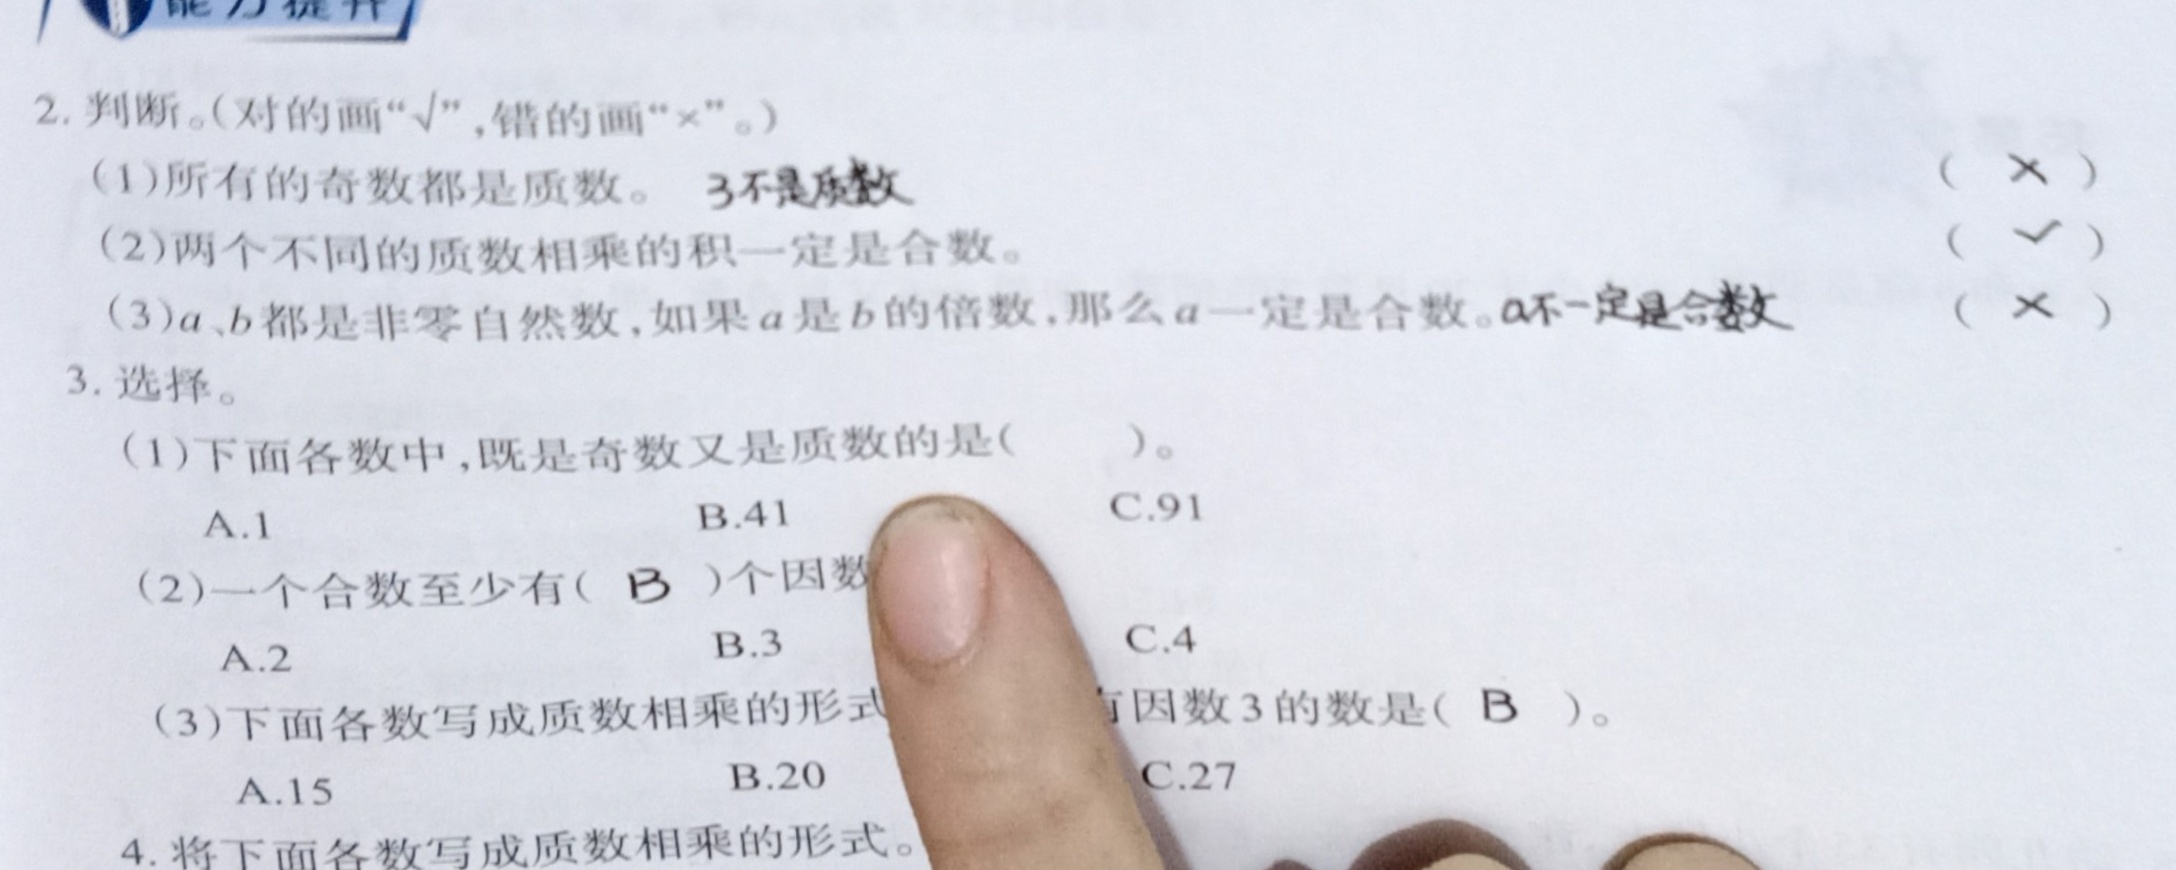 能力提升
2. 判断。(对的画“√”,错的画“×”。)
(1)所有的奇数都是质数。 3不是质数 ( × )
(2)两个不同的质数相乘的积一定是合数。 ( ✓ )
(3)a、b都是非零自然数,如果a是b的倍数,那么a一定是合数。a不一定是合数 ( × )
3. 选择。
(1)下面各数中,既是奇数又是质数的是( )。
A.1 B.41 C.91
(2)一个合数至少有( B )个因数
A.2 B.3 C.4
(3)下面各数写成质数相乘的形式 有因数3的数是( B )。
A.15 B.20 C.27
4. 将下面各数写成质数相乘的形式。